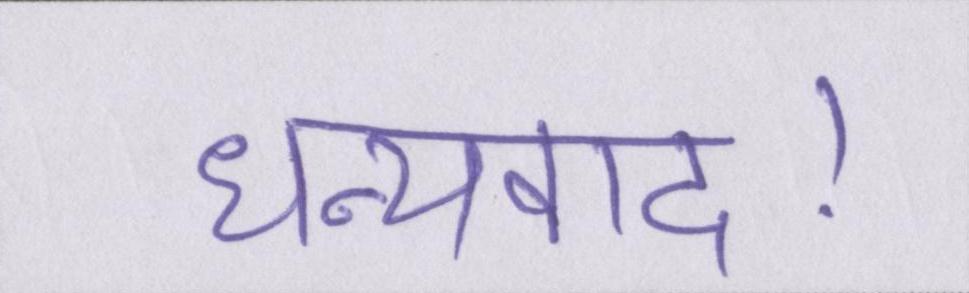 धन्यवाद!